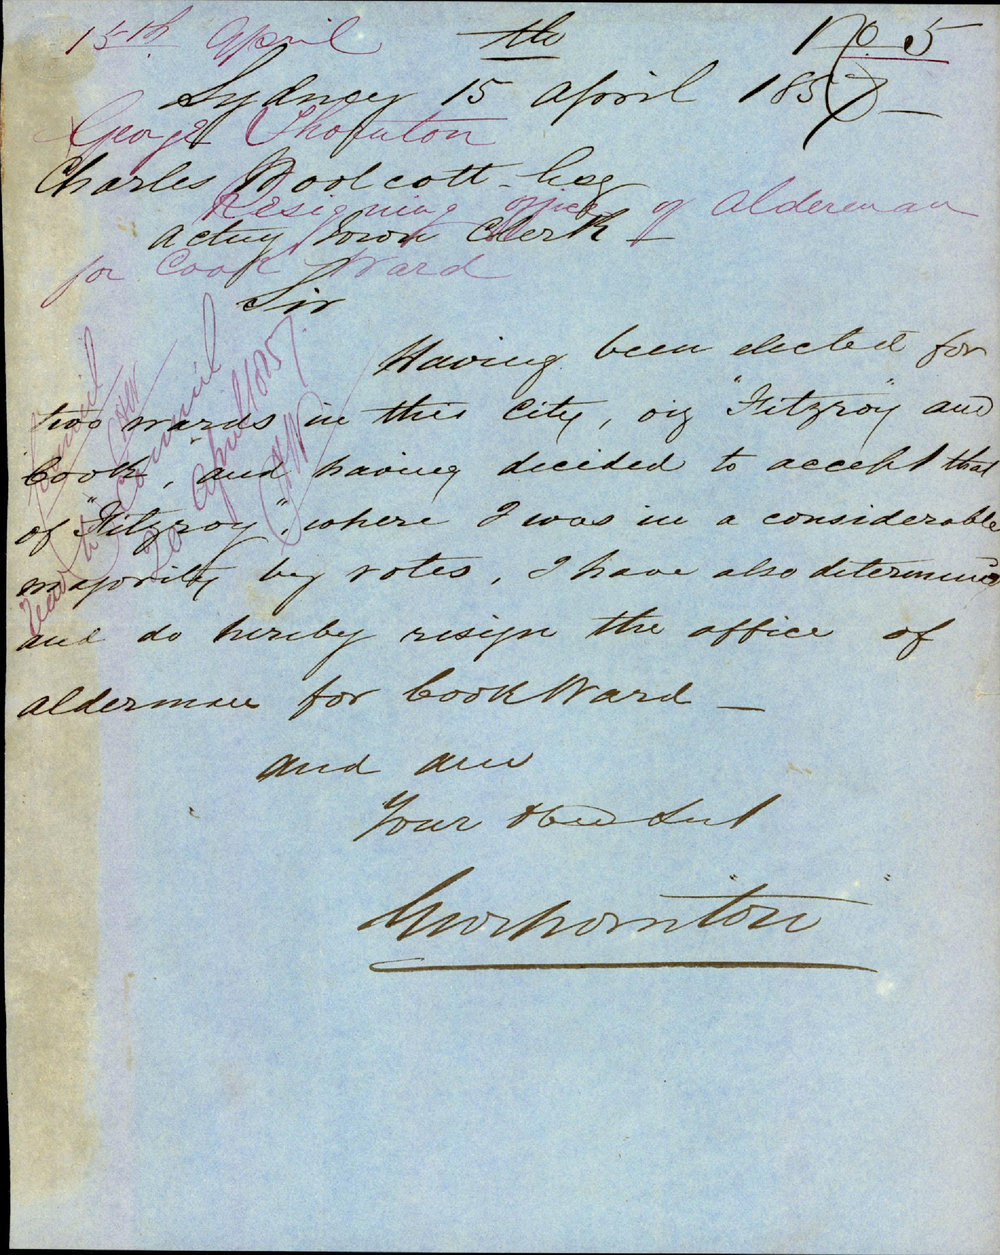 15th April
the
No 5
Sydney 15 April 1857
George Thornton
Charles Woolcott Esq
Resigning office of Alderman
Acting Town Clerk
for Cook Ward
Sir
Having been elected for
two wards in this City, viz "Fitzroy" and
Cook, and having decided to accept that
of "Fitzroy", where I was in a considerable
majority by votes, I have also determined
and do hereby resign the office of
alderman for Cook Ward
and am
Your Obed Sert
Geo Thornton
Read to Council
20 April 1857
CHW